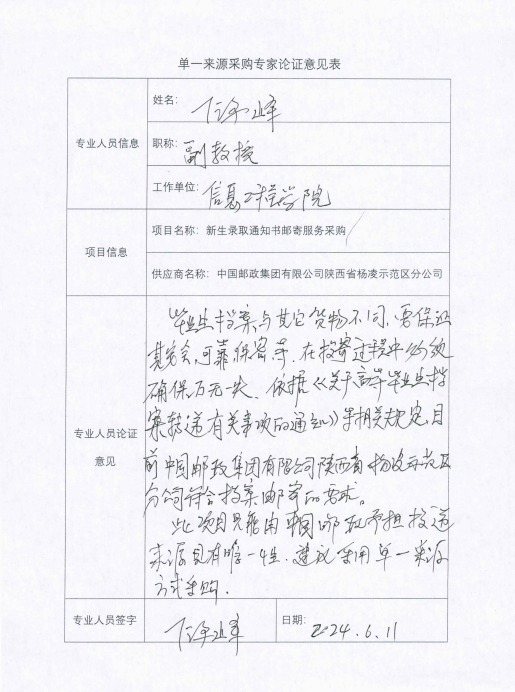 单一来源采购专家论证意见表
专业人员信息
姓名:
职称: 副教授
工作单位: 信息工程学院
项目信息
项目名称: 新生录取通知书邮寄服务采购
供应商名称: 中国邮政集团有限公司陕西省杨凌示范区分公司
专业人员论证
意见
毕业生档案与其它货物不同,要保证
其安全、可靠、保密等,在投寄过程中必须
确保万无一失、依据《关于高等毕业生档
案转递有关事项的通知》等相关规定,目
前中国邮政集团有限公司陕西省杨凌示范区
分公司符合档案邮寄的要求。
此项目只能由中国邮政承担投递
来源具有唯一性,建议采用单一来源
方式采购.
专业人员签字
日期: 2024.6.11